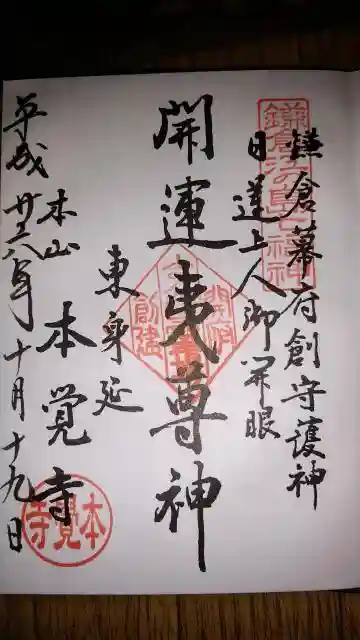 鎌倉幕府創守護神
日蓮上人御開眼
開運夷尊神
東身延
本山
本覚寺
平成廿六年十月十九日
鎌倉江島七福神
創建
本覺寺